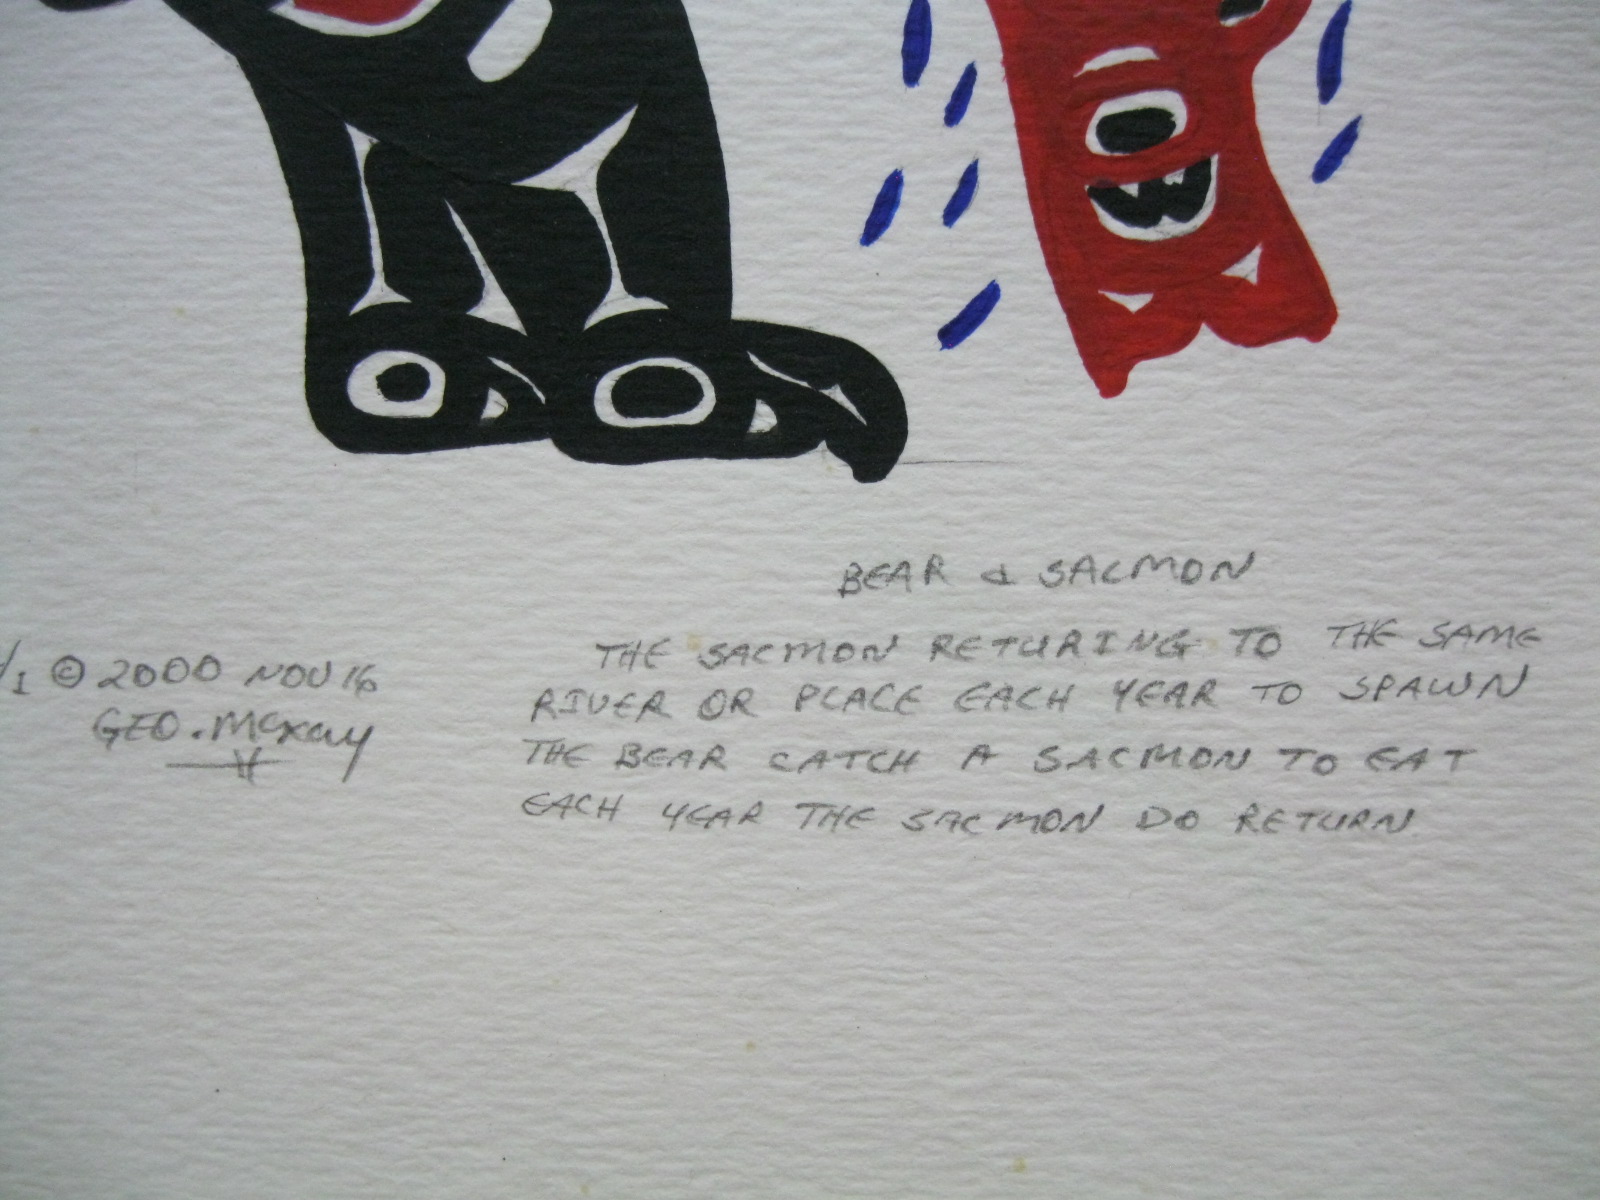 BEAR & SALMON
THE SALMON RETURING TO THE SAME
RIVER OR PLACE EACH YEAR TO SPAWN
THE BEAR CATCH A SALMON TO EAT
EACH YEAR THE SALMON DO RETURN
/1 © 2000 NOV 16
GEO. McKay